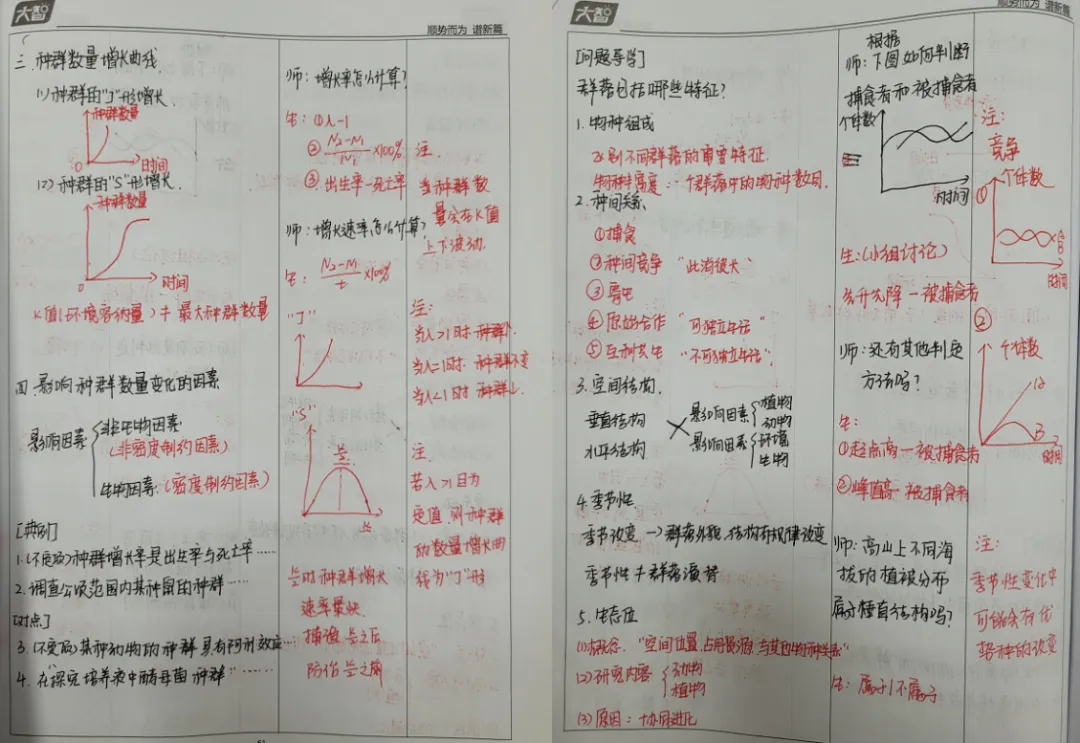 大智
顺势而为 谱新篇
三.种群数量增长曲线
(1)种群的"J"形增长
种群数量
0
时间
(2)种群的"S"形增长.
种群数量
时间
K值(环境容纳量)≠最大种群数量
四.影响种群数量变化的因素
影响因素
非生物因素
(非密度制约因素)
生物因素(密度制约因素)
[典例]
1.(不良场)种群增长率是出生率与死亡率……
2.调查公顷范围内某种鼠的种群……
[对点]
3.某种动物的种群具有阿利效应……
4."在探究培养液中酵母菌种群"……
师:增长率怎么计算?
生:①λ-1
②N₂-N₁/N₁×100%
③.出生率-死亡率
师:增长速率怎么计算?
生:N₂-N₁/t×100%
"J"
"S"
K/2
K
K/2时种群增长
速率最快.
捕渔 K/2之后
防治 K/2之前
注.
当种群数
量会在K值
上下波动.
注:
当λ>1时.种群↑.
当λ=1时.种群不变
当λ<1时 种群↓.
注.
若λ>1且为
定值.则种群
的数量增长曲
线为"J"形
大智
顺势而为 谱新篇
[问题导学]
群落包括哪些特征?
1.物种组成
区别不同群落的重要特征.
物种丰富度:一个群落中的物种数目.
2.种间关系
①捕食
②种间竞争 "此消彼长"
③寄生
④原始合作 "可独立生活"
⑤互利共生 "不可独立生活".
3.空间结构.
垂直结构
水平结构
影响因素
植物
动物
影响因素
环境
生物
4.季节性.
季节改变→群落外貌.结构有规律改变
季节性≠群落演替
5.生态位
(1)概念."空间位置,占用资源,与其他物种关系"
(2)研究内容
动物
植物
(3)原因:协同进化
根据
师:下图如何判断
捕食者和被捕食者
个体数
时间
生:(小组讨论)
先升先降-被捕食者
师:还有其他判定
方法吗?
生:
①起点高-被捕食者
②峰值高-被捕食者
师:高山上不同海
拔的植被分布
属于垂直结构吗?
生:属于/不属于
注:
竞争
①
个体数
A
B
时间
②
个体数
A
B
时间
注:
季节性变化中
可能会有优
势种的改变